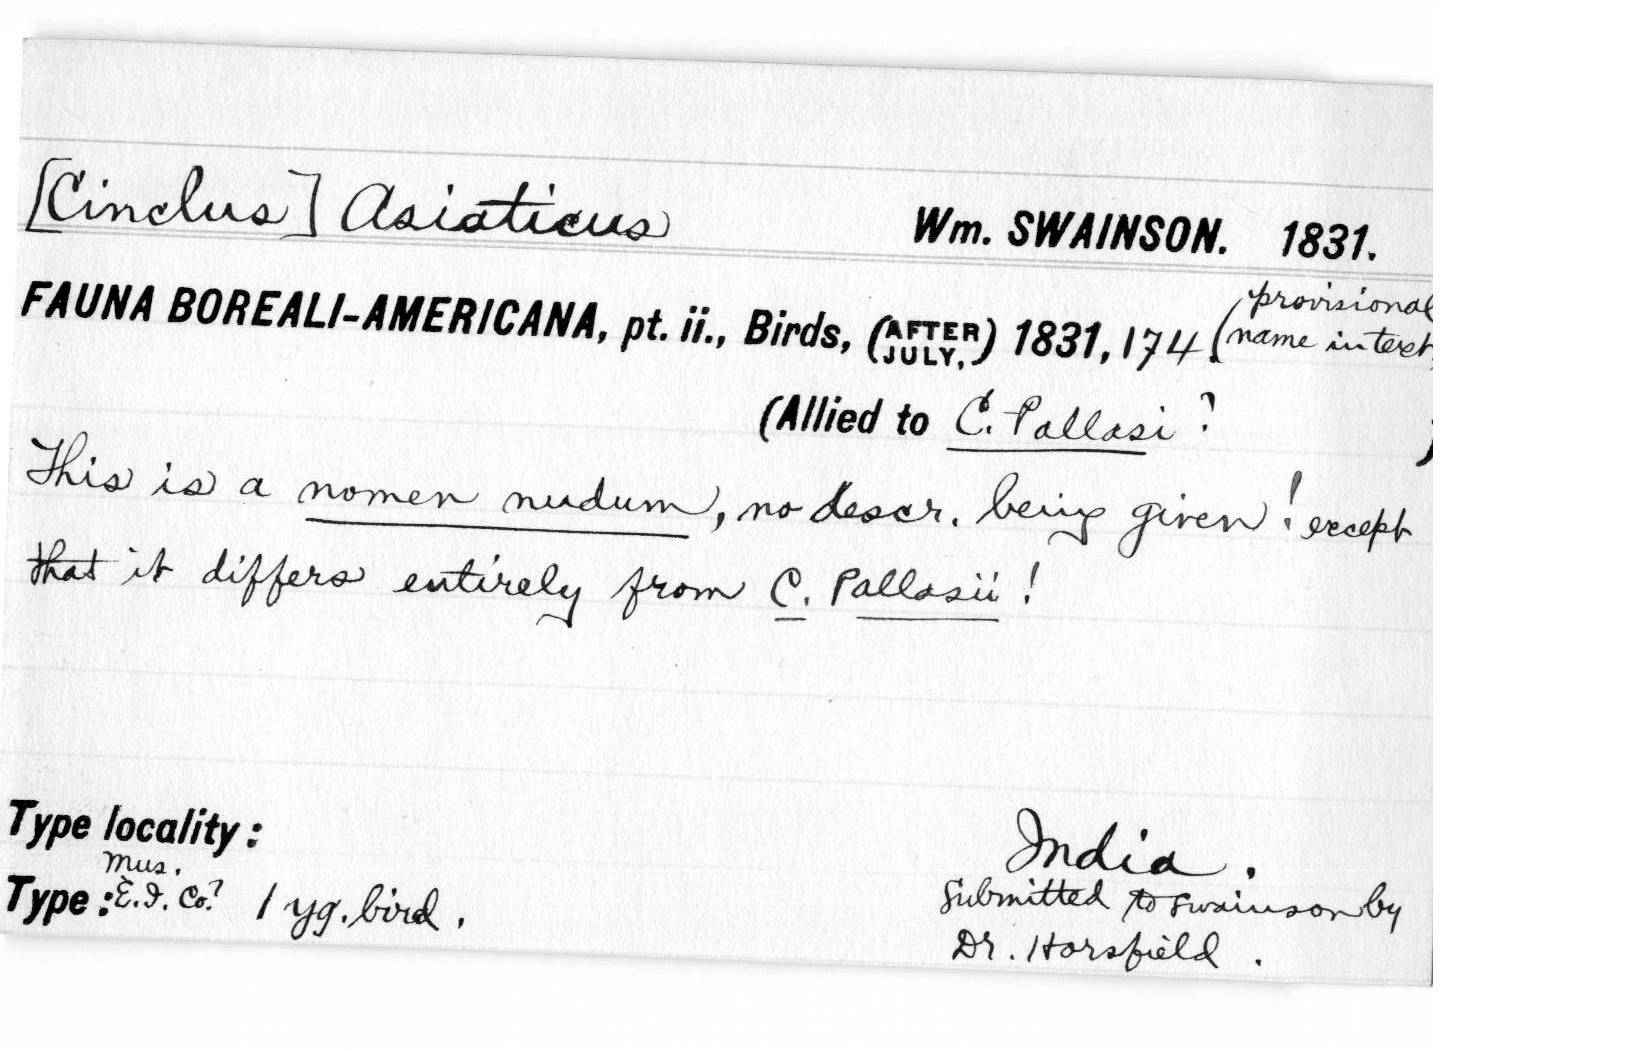 [Cinclus] Asiaticus Wm. SWAINSON. 1831.
FAUNA BOREALI-AMERICANA, pt. ii., Birds, (AFTER JULY,) 1831, 174 (provisional name in text,
(Allied to C. Pallasi? )
This is a nomen nudum, no descr. being given! except
that it differs entirely from C. Pallasii!
Type locality: India.
Type: Mus. E.I. Co.? 1 yg. bird. Submitted to Swainson by
Dr. Horsfield.